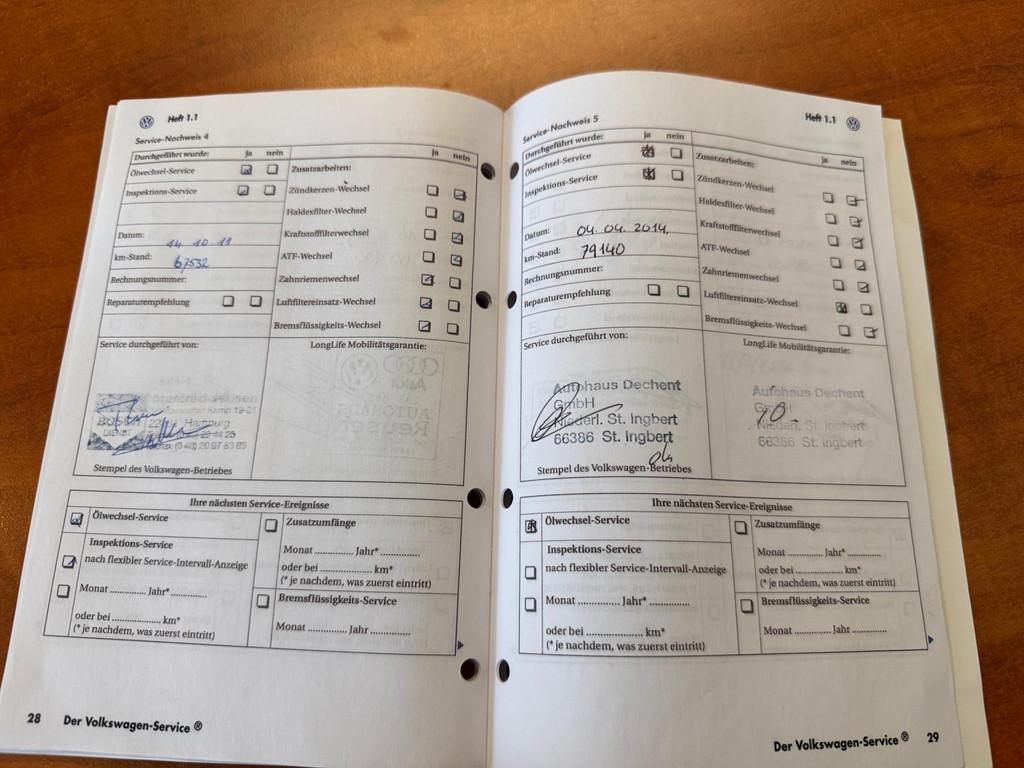 Heft 1.1
Service-Nachweis 4
Durchgeführt wurde: ja nein
Ölwechsel-Service
Inspektions-Service
Datum: 14.10.11
km-Stand: 67532
Rechnungsnummer:
Reparaturempfehlung
Zusatzarbeiten: ja nein
Zündkerzen-Wechsel
Haldexfilter-Wechsel
Kraftstofffilterwechsel
ATF-Wechsel
Zahnriemenwechsel
Luftfiltereinsatz-Wechsel
Bremsflüssigkeits-Wechsel
Service durchgeführt von:
Hamburg
Stempel des Volkswagen-Betriebes
LongLife Mobilitätsgarantie:
Ihre nächsten Service-Ereignisse
Ölwechsel-Service
Inspektions-Service
nach flexibler Service-Intervall-Anzeige
Monat ............ Jahr* ............
oder bei .................... km*
(* je nachdem, was zuerst eintritt)
Zusatzumfänge
Monat ............ Jahr* ............
oder bei .................... km*
(* je nachdem, was zuerst eintritt)
Bremsflüssigkeits-Service
Monat ............ Jahr ............
28 Der Volkswagen-Service ®
Heft 1.1
Service-Nachweis 5
Durchgeführt wurde: ja nein
Ölwechsel-Service
Inspektions-Service
Datum: 04.04.2014
km-Stand: 79140
Rechnungsnummer:
Reparaturempfehlung
Zusatzarbeiten: ja nein
Zündkerzen-Wechsel
Haldexfilter-Wechsel
Kraftstofffilterwechsel
ATF-Wechsel
Zahnriemenwechsel
Luftfiltereinsatz-Wechsel
Bremsflüssigkeits-Wechsel
Service durchgeführt von:
Autohaus Dechent
GmbH
Niederl. St. Ingbert
66386 St. Ingbert
Stempel des Volkswagen-Betriebes
LongLife Mobilitätsgarantie:
Autohaus Dechent
GmbH
Niederl. St. Ingbert
66386 St. Ingbert
Ihre nächsten Service-Ereignisse
Ölwechsel-Service
Inspektions-Service
nach flexibler Service-Intervall-Anzeige
Monat ............ Jahr* ............
oder bei .................... km*
(* je nachdem, was zuerst eintritt)
Zusatzumfänge
Monat ............ Jahr* ............
oder bei .................... km*
(* je nachdem, was zuerst eintritt)
Bremsflüssigkeits-Service
Monat ............ Jahr ............
Der Volkswagen-Service ® 29